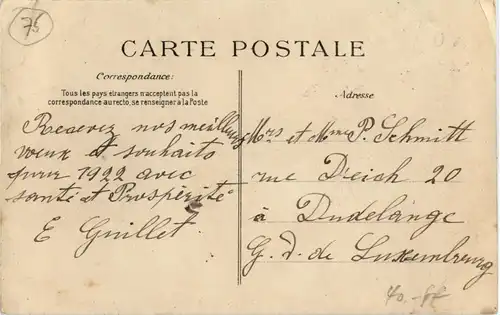 75
CARTE POSTALE
Correspondance:
Tous les pays étrangers n'acceptent pas la
correspondance au recto, se renseigner à la Poste
Recevez nos meilleurs
vœux et souhaits
pour 1922 avec
santé et Prospérité
E Guillet
Adresse
Mrs et Mme P. Schmitt
rue Deich 20
à Dudelange
G. d. de Luxembourg